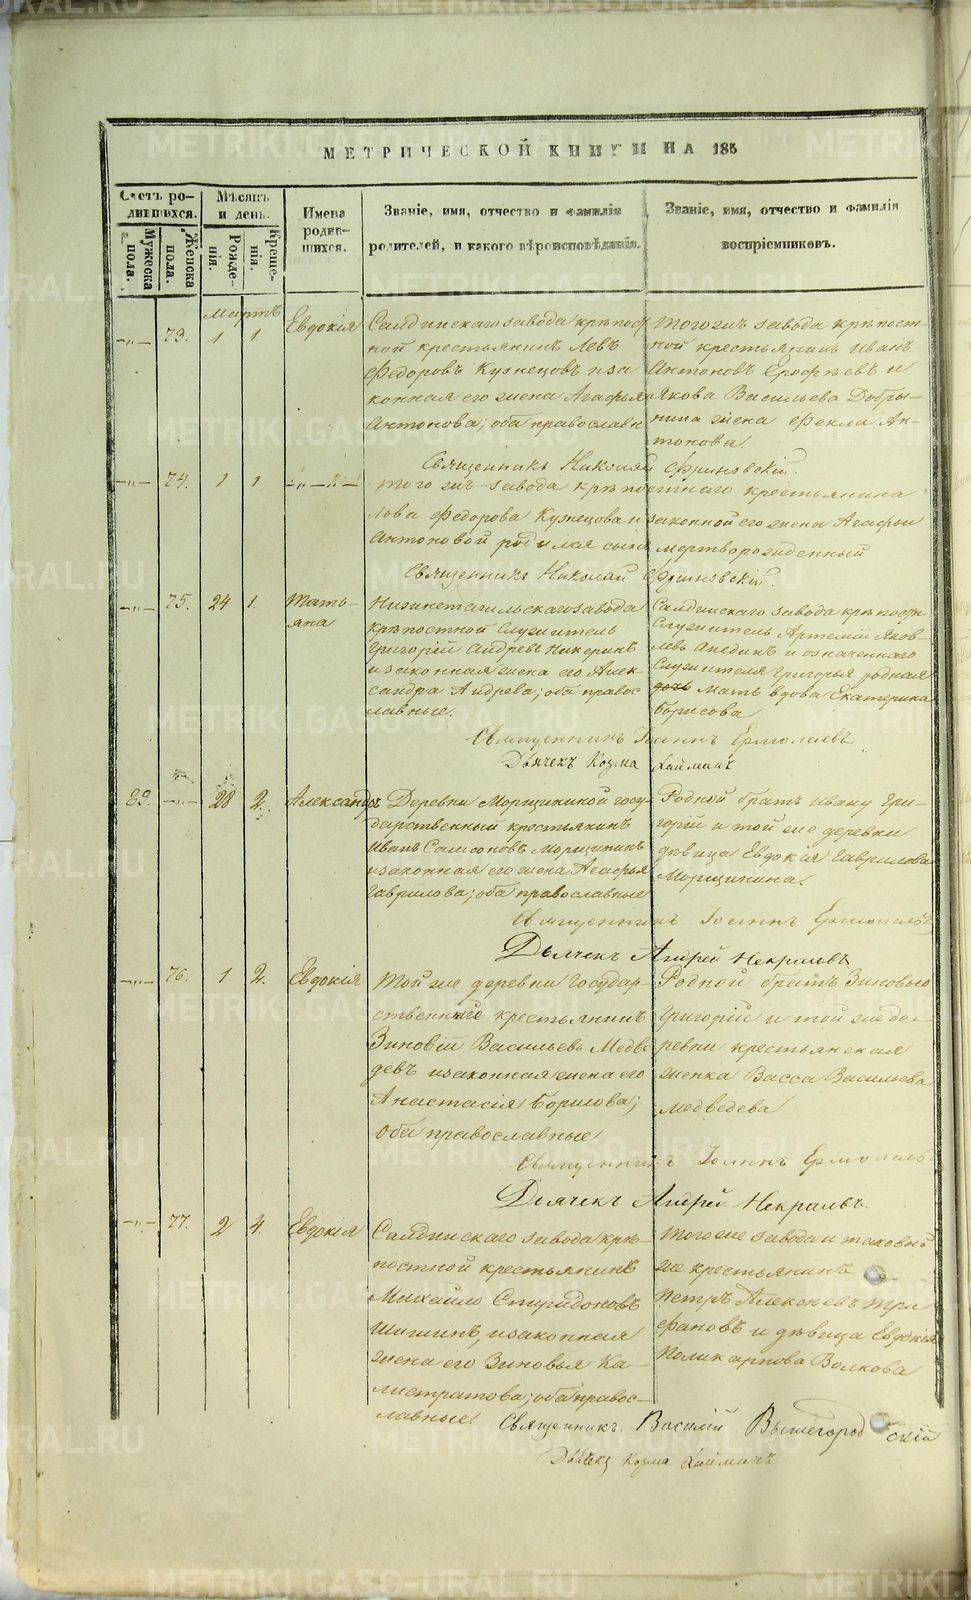 МЕТРИЧЕСКОЙ КНИГИ НА 185
Счетъ ро-
дившихся.
Мужеска
пола.
Женска
пола.
Мѣсяцъ
и день.
Рожде-
нія.
Креще-
нія.
Имена
родив-
шихся.
Званіе, имя, отчество и фамилія
родителей, и какого вѣроисповѣданія.
Званіе, имя, отчество и фамилія
воспріемниковъ.
Мартъ
—„— 73. 1 1. Евдокія
Салдинскаго завода крѣпост
ной крестьянинъ Левъ
Федоровъ Кузнецовъ и за
конная его жена Агафья
Антонова; оба православн
Того жъ завода крѣпост-
ной крестьянинъ Иванъ
Антоновъ Ерофѣевъ и
Якова Васильева Добры-
нина жена Фекла Ан-
тонова
Священникъ Николай Фриновскій.
—„— 74. 1 1 —„—„—
Того жъ завода крѣпостнаго крестьянина
Льва Федорова Кузнецова и законной его жены Агафьи
Антоновой родился сынъ мертворожденный
Священникъ Николай Фриновскій.
—„— 75. 24 1. Тать-
яна
Нижнетагильскаго завода
крѣпостной служитель
Григорій Андреевъ
и законная жена его Алек-
сандра Андреева; оба правос
лавные.
Салдинскаго завода крѣпостн
служитель Артемій Яков-
левъ и означеннаго
служителя Григорья родная
дочь мать вдова Екатерина
Борисова
Священникъ Іоаннъ Ермолаевъ
Дьячекъ Козма
89. —„— 28 2. Александръ
Деревни Морщининой госу-
дарственный крестьянинъ
Иванъ Самсоновъ Морщининъ
и законная его жена Агафья
Гаврилова; оба православные
Родной братъ Ивану Гри-
горій и той же деревни
дѣвица Евдокія Гаврилова
Морщинина.
Священникъ Іоаннъ Ермолаевъ
Дьячекъ Андрей Некрасовъ
—„— 76. 1 2. Евдокія
Той же деревни Государ-
ственнаго крестьянинъ
Зиновій Васильевъ Медве
девъ и законная жена его
Анастасія Борисова;
оба православные
Родной братъ Зиновью
Григорій и той же де-
ревни крестьянская
женка Васса Васильева
Медведева
Священникъ Іоаннъ Ермолаевъ
Дьячекъ Андрей Некрасовъ
—„— 77. 2 4. Евдокія
Салдинскаго завода крѣ-
постной крестьянинъ
Михайло Спиридоновъ
Шишинъ, и законная
жена его Зиновья Ка-
листратова; оба правос-
лавные
Того же завода и таковый
же крестьянинъ
Петръ Алексѣевъ Три
фановъ и дѣвица Евдокія
Поликарпова Волкова
Священникъ Василій Вышегородскій
Дьячекъ Козма
METRIKI.GASO-URAL.RU